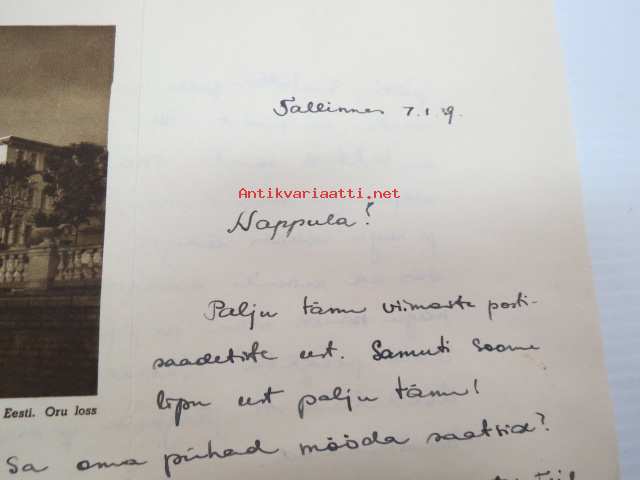 Tallinnas 7.1.39.
Antikvariaatti.net
Nappula!
Palju tänu viimaste posti-
saadetiste eest. Samuti soome
lipu eest palju tänu!
Eesti. Oru loss
Sa oma pühad mööda saatsid?